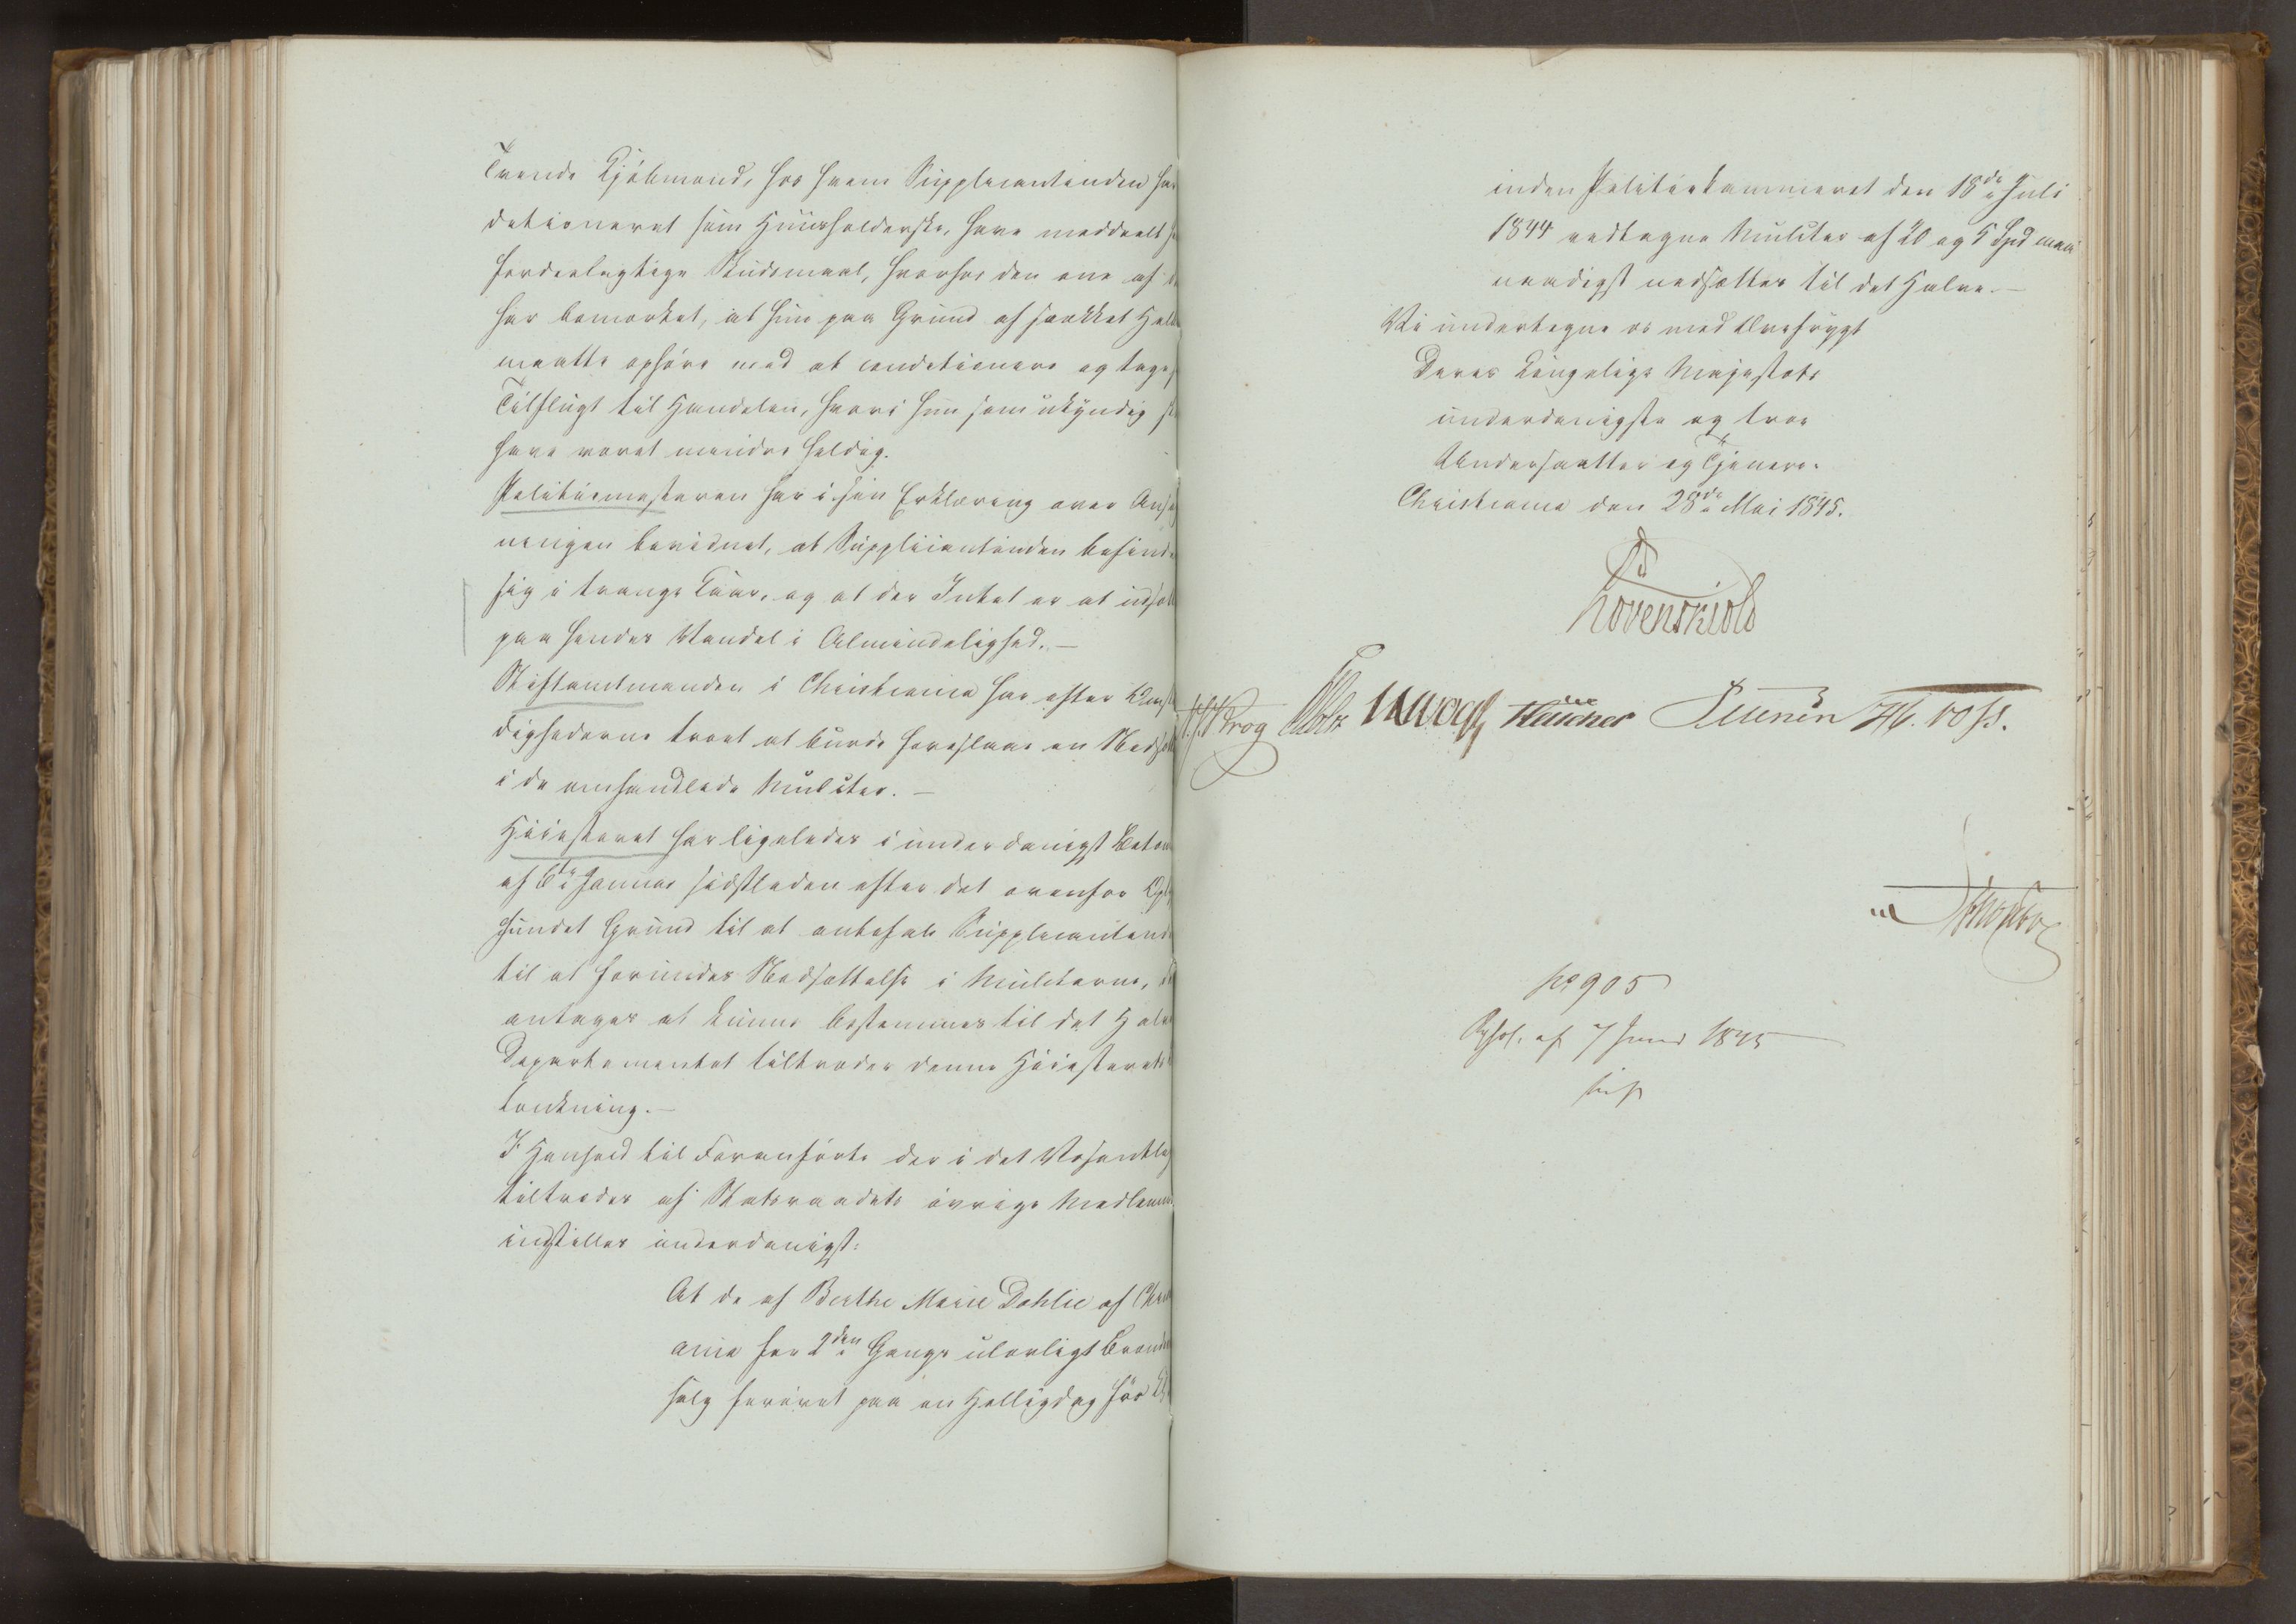 Tvende Kjöbmænd, hos hvem Supplicantinden har
ditioneret som Huusholderske, have meddeelt
fordeelagtige Skudsmaal, hvorhos den ene af
har bemærket, at hun paa Grund af svækket Hel
maatte ophöre med at conditionere og tage
Tilflugt til Handelen, hvori hun som ukyndig
have været mindre heldig.
Politiemesteren har i sin Erklæring over Ansø
ningen bevidnet, at Supplicantinden befind
sig i trange Kaar, og at der Intet er at udsætt
paa hendes Vandel i Almindelighed.—
Stiftamtmanden i Christiania har efter Omst
dighederne troet at burde foreslaae en Nedsætt
i de omhandlede Mulcter.—
Höiesteret har ligeledes i underdanigst Betæn
af 6te Januar sidstleden efter det ovenfor Opl
fundet Grund til at anbefale Supplicantind
til at forundes Nedsættelse i Mulcterne,
antages at kunne bestemmes til det Halv
Departementet tiltræder denne Höiesterets
tænkning.—
I Henhold til Foranförte der i det Væsentlig
tiltrædes af Statsraadets övrige Medlemm
indstilles underdanigst:
At de af Berthe Marie Dahlie af Christi
ania for 2den Gangs ulovligt Brændev
salg forövet paa en Helligdag for
inden Politiekammeret den 18de Juli
1844 vedtagne Mulcter af 20 og 5 Spd maa
naadigst nedsættes til det Halve.—
Vi undertegne os med Ærefrygt
Deres Kongelige Majestæts
underdanigste og troe
Undersaatter og Tjenere.
Christiania den 28de Mai 1845.
Lövenskiold
Krog Vogt H. Voss.
No 905
Resol. af 7 Juni 1845